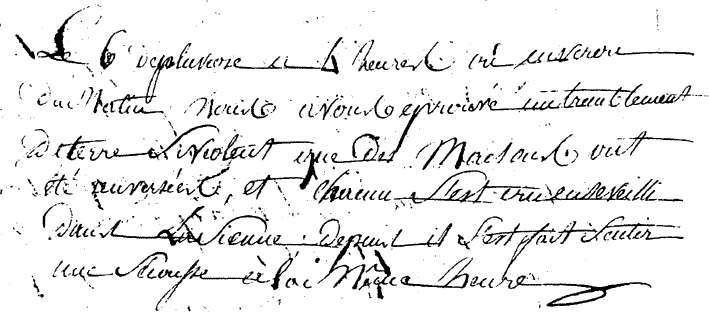 Le 6 de pluviose a 4 heures et environ
du Matin Nous avons éprouvé un tremblement
de terre si violent que des Maisons ont
été renversées, et chacun s'est cru enseveli
dans La sienne. depuis il s'est fait sentir
une secousse à la Même heure